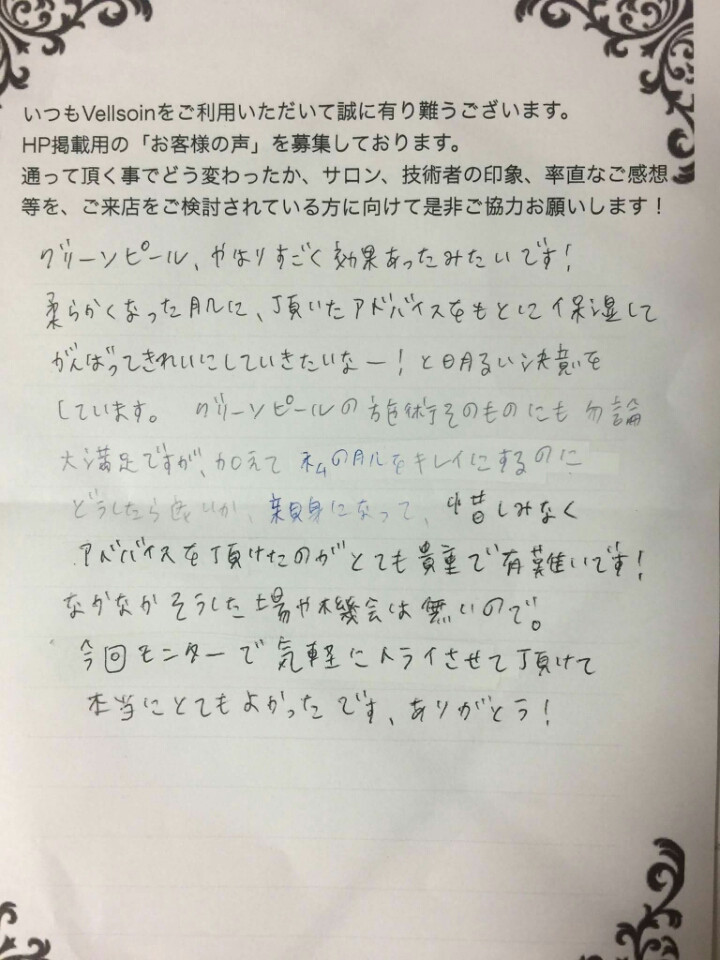 いつもVellsoinをご利用いただいて誠に有り難うございます。
HP掲載用の「お客様の声」を募集しております。
通って頂く事でどう変わったか、サロン、技術者の印象、率直なご感想
等を、ご来店をご検討されている方に向けて是非ご協力お願いします！
グリーンピール、やはりすごく効果あったみたいです！
柔らかくなった肌に、頂いたアドバイスをもとに保湿して
がんばってきれいにしていきたいなー！と明るい決意を
しています。 グリーンピールの施術そのものにも勿論
大満足ですが、加えて 私の肌をキレイにするのに
どうしたら良いか、親身になって、惜しみなく
アドバイスを頂けたのがとても貴重で有難いです！
なかなかそうした場や機会は無いので。
今回モニターで気軽にトライさせて頂けて
本当にとてもよかったです、ありがとう！